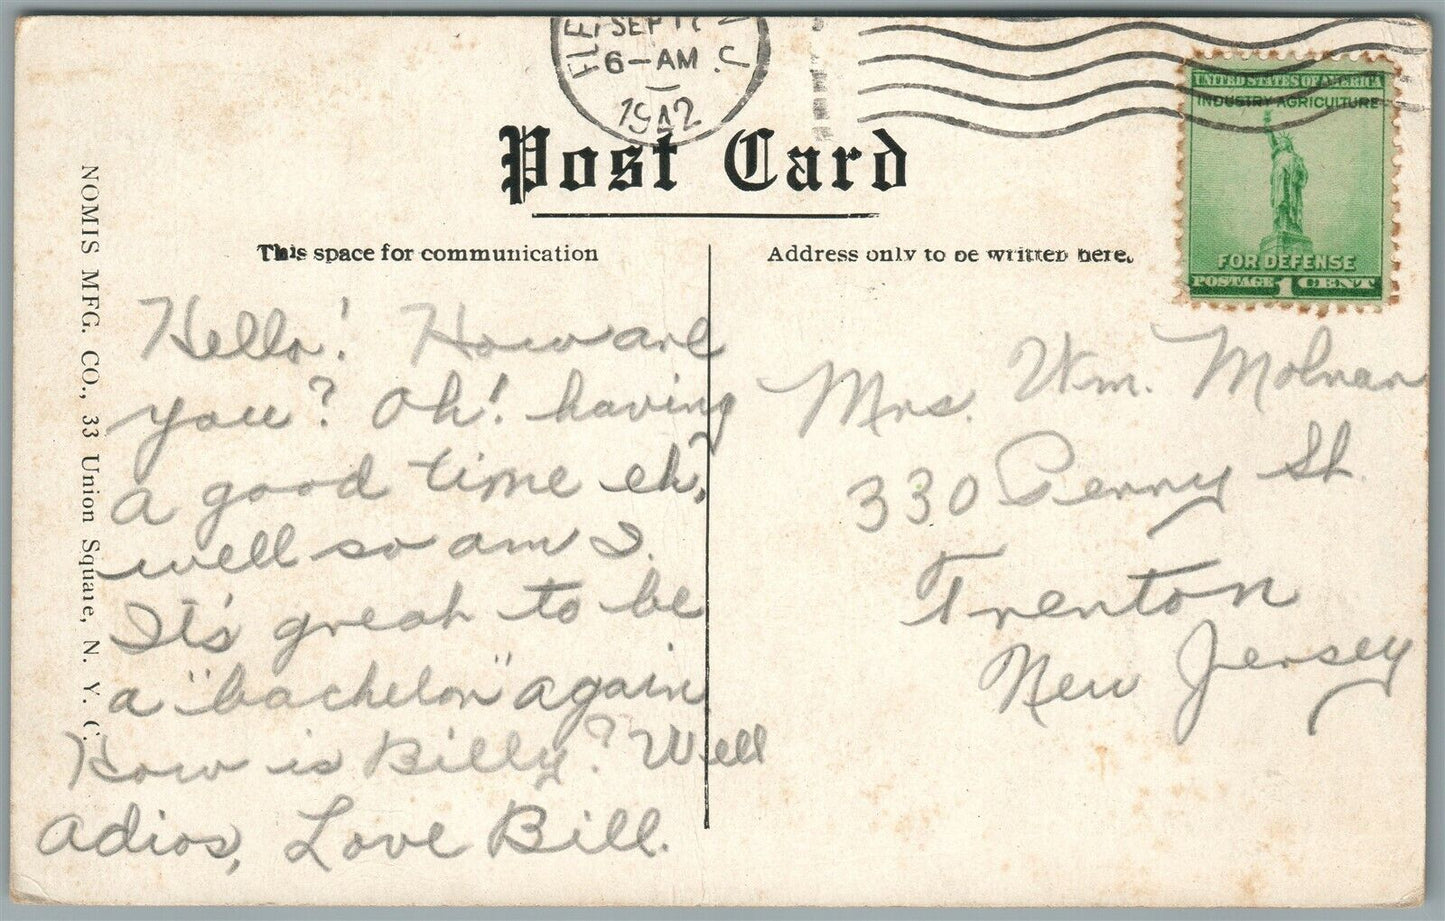 SEP 17
6-AM
1942
UNITED STATES OF AMERICA
INDUSTRY AGRICULTURE
FOR DEFENSE
POSTAGE 1 CENT
Post Card
This space for communication
Address only to be written here.
NOMIS MFG. CO., 33 Union Square, N. Y. C.
Hello! How are
you? Oh! having
a good time eh?
well so am I.
It's great to be
a "bachelor" again
How is Billy? Well
adios, Love Bill.
Mrs. Wm. Molnar
330 Penny St.
Trenton
New Jersey